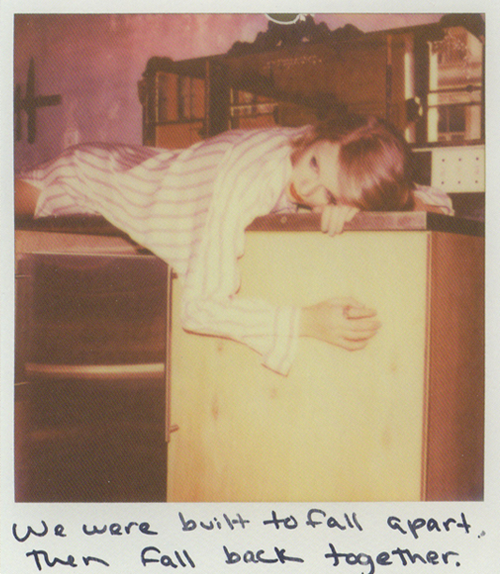 We were built to fall apart,
Then fall back together.